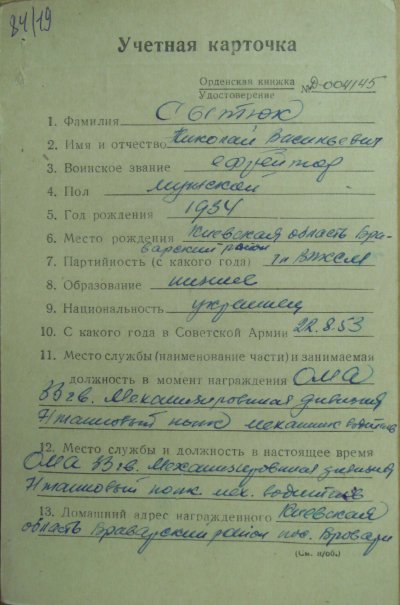 84/19
Учетная карточка
Орденская книжка
Удостоверение № Д-004145
1. Фамилия Сытюк
2. Имя и отчество Николай Васильевич
3. Воинское звание ефрейтор
4. Пол мужской
5. Год рождения 1934
6. Место рождения Киевская область Бра-
варский район
7. Партийность (с какого года) чл ВЛКСМ
8. Образование низшее
9. Национальность украинец
10. С какого года в Советской Армии 22.8.53
11. Место службы (наименование части) и занимаемая
должность в момент награждения ОМА
33 гв. Механизированная дивизия
71 танковый полк механик водитель
12. Место службы и должность в настоящее время
ОМА 33 гв. Механизированная дивизия
71 танковый полк. мех. водитель
13. Домашний адрес награжденного Киевская
область Браварский район пос. Бровары
(См. н/об.)